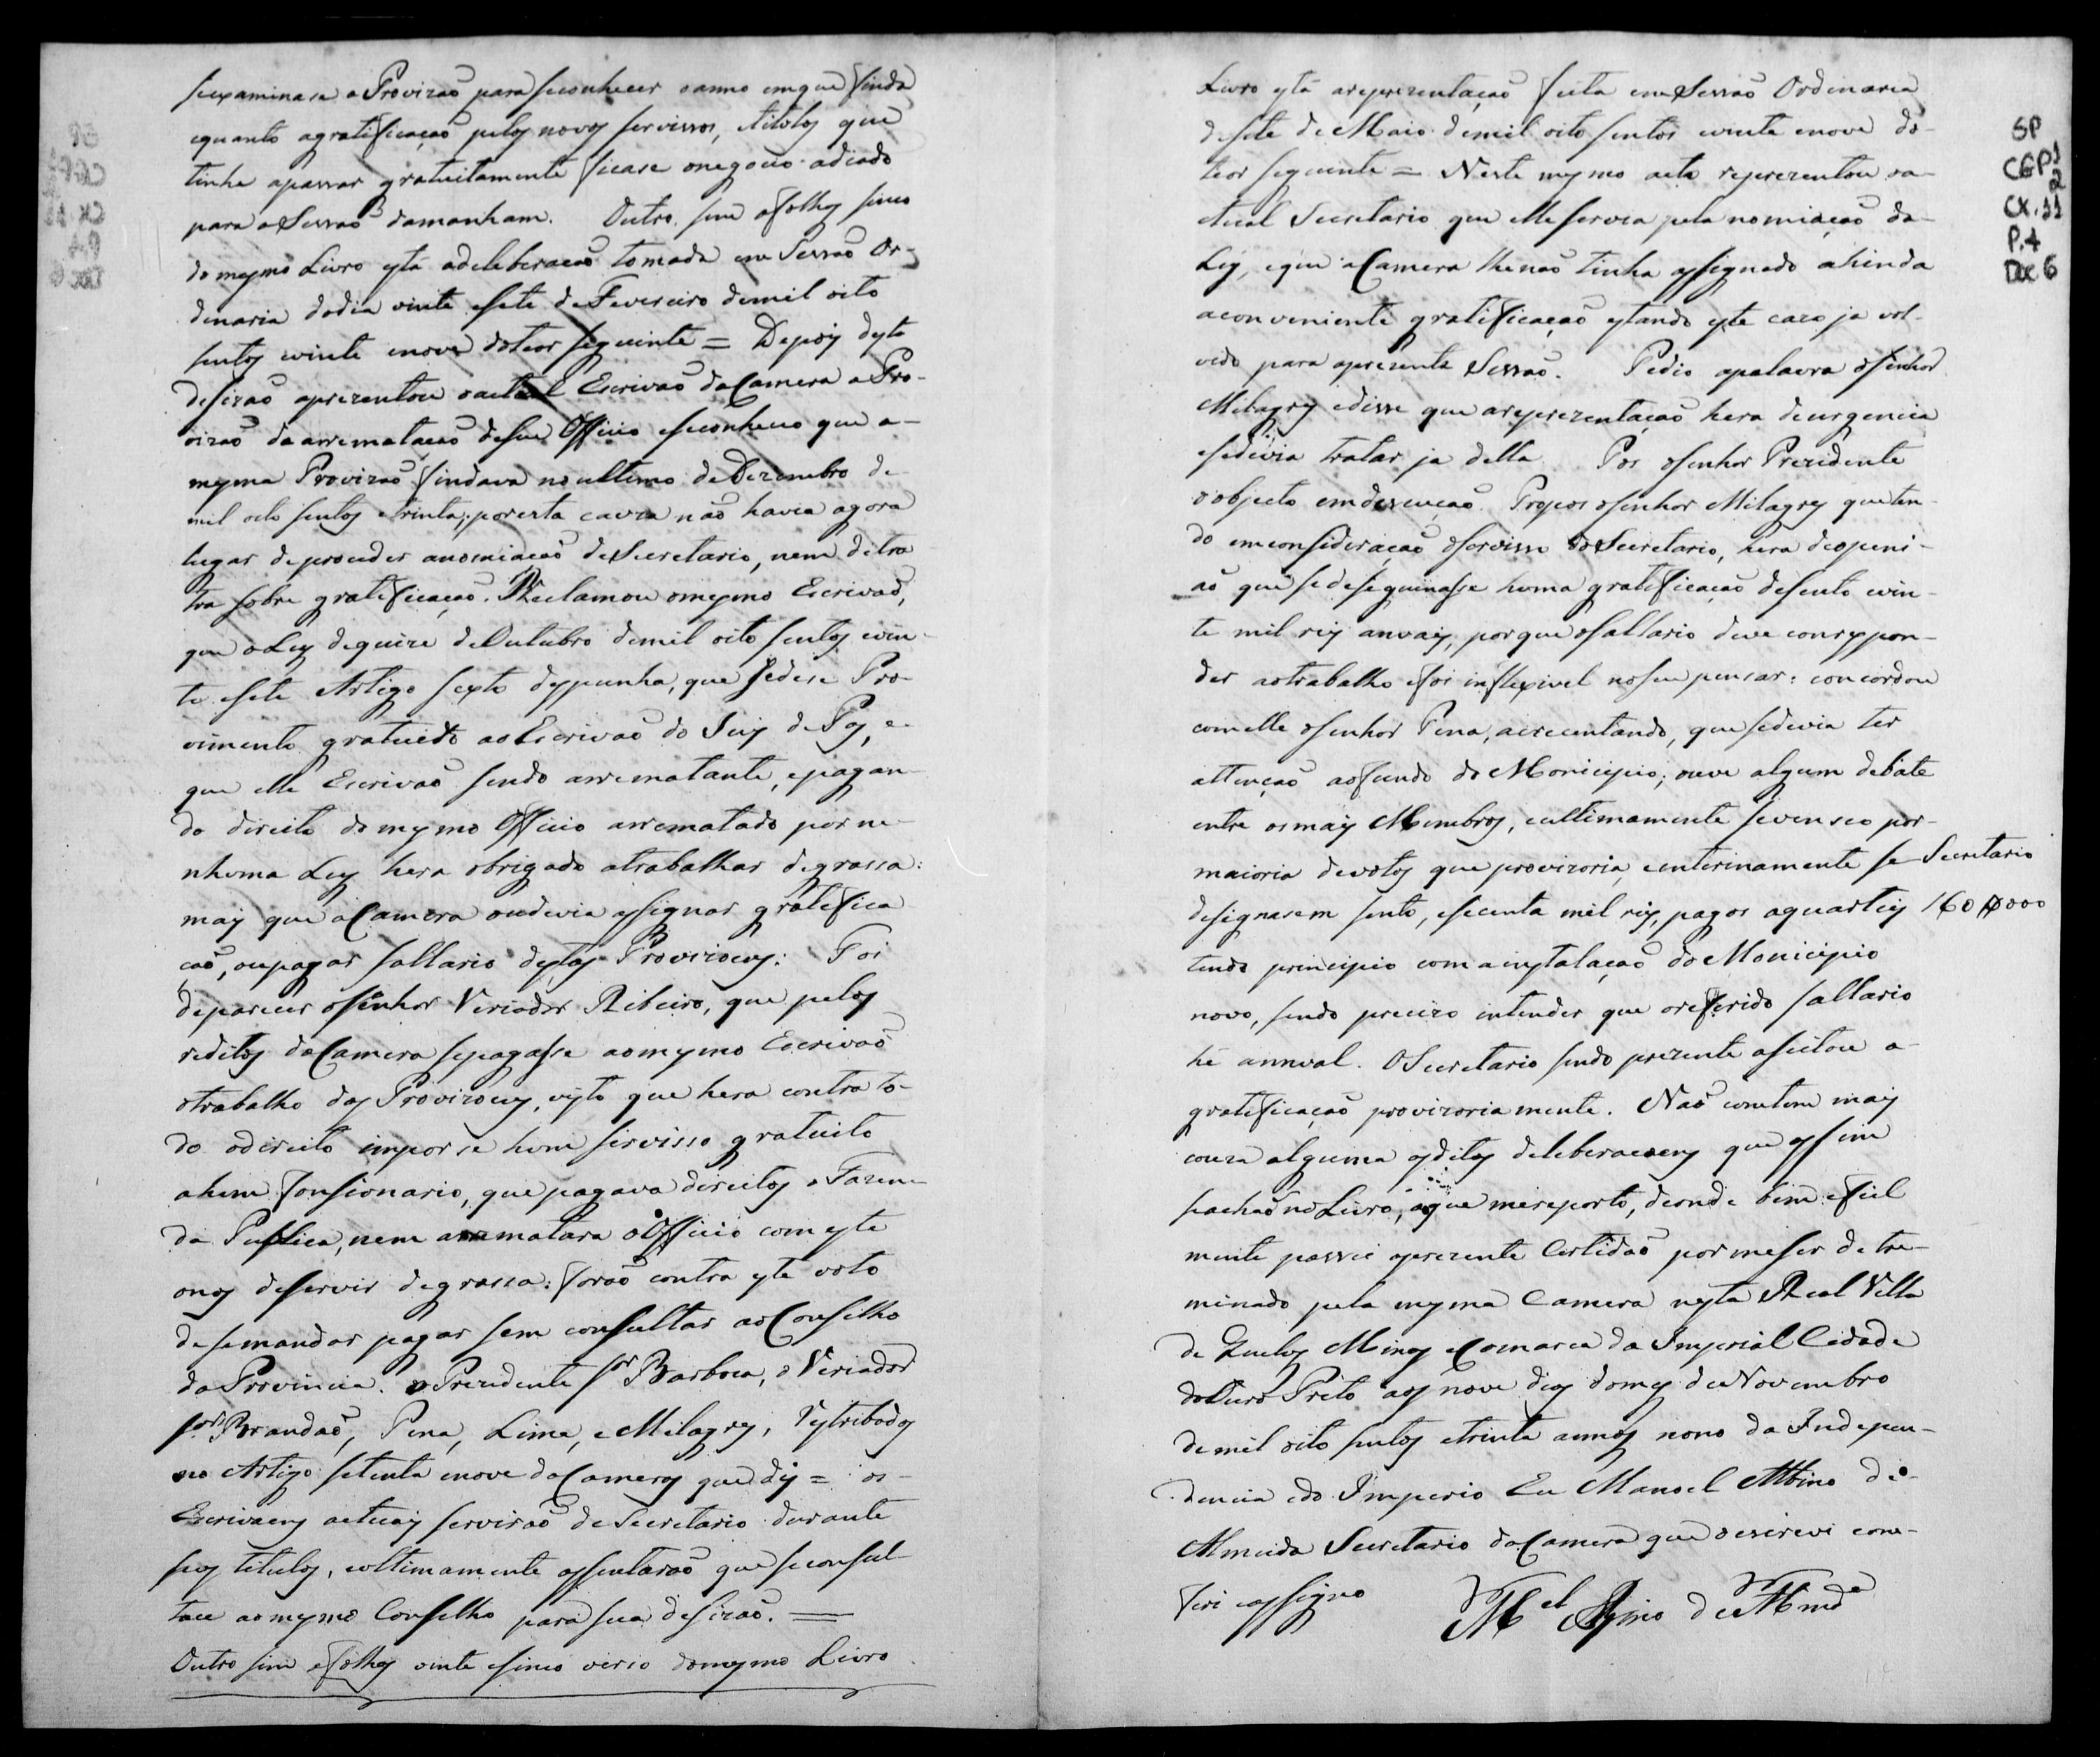 se examinase a Provizaõ para seconhecer oanno emque finda
equanto agratificaçaõ pelos novos servissos, etitolos que
tinha apassar gratuitamente ficase onegocio adiado
para a Sessaõ damanham. Outro sim afolhas sinco
do mesmo Livro está adeleberacaõ tomada em Sessaõ Or-
denaria dodia vinte esete de Fevereiro demil oito
sentos vinte enove doteor seguinte = Depois desta
desizaõ aprezentou oactual Escrivaõ daCamera a Pro-
vizaõ da arrematacaõ deseu Officio eseconheceo que a-
mesma Provizaõ findava no ultimo deDezembro de
mil oito sentos etrinta; poresta cauza naõ havia agora
lugar deproceder anomiacaõ deSecretario, nem detra
tra sobre gratificaçaõ. Reclamou omesmo Escrivaõ,
que aLey dequinze deOutubro demil oito sentos vin-
te esete Artigo sexto despunha, que sedese Pro-
vimento gratuito ao Escrivaõ do Juis de Pas, e
que elle Escrivaõ sendo arrematante, epagan-
do direito do mesmo Officio arrematado por ne-
nhuma Ley hera obrigado atrabalhar degrassa:
mais que aCamera oudevia assignar gratifica
çaõ, oupagar sallario destas Provizoens: Foi
deparecer osenhor Veriador Ribeiro, que pelos
reditos daCamera sepagasse aomesmo Escrivaõ
otrabalho das Provizoens, visto que hera contra to-
do odireito impor se hum servisso gratuito
ahum fonsionario, que pagava direitos a Fazen-
da Publica, nem arrematara oOfficio com este
onos deservir degrassa: foraõ contra este voto
desemandar pagar sem consultar aoConselho
daProvincia. oPrezidente Sr. Barboza, o Veriador
Sres. Brandaõ, Pena, Lima, e Milagres,
no Artigo setenta enove daCameras que dis = os-
Escrivaens actuais serviraõ deSecretario durante
seos titulos, eoltimamente assentaraõ que seconsul-
tace aomesmo Conselho para sua desizaõ. =
Outro sim afolhas vinte esinco verso domesmo Livro
Livro está areprezentaçaõ feita em Sessaõ Ordenaria
desete de Maio demil oito sentos vinte enove do-
teor seguinte = Neste mesmo acto reprezentou oa-
ctual Secretario que elle servia pela nomiaçaõ da-
Ley, eque aCamera lhenaõ tinha assignado ahinda
aconveniente gratificaçaõ estando este cazo ja vol-
vido para aprezente Sessaõ. Pedio apalavra osenhor
Milagres edisse que areprezentaçaõ hera deurgencia
esedevia tratar ja della. Pos osenhor Prezidente
oobjecto emdescuçaõ. Propos osenhor Milagres queten-
do emconsideraçaõ oservisso doSecretario, hera deopeni-
aõ que sedeseguinasse huma gratificaçaõ desento vin-
te mil reis anuais, porque osallario deve conrespon-
der aotrabalho efoi inflexivel noseu pensar: concordou
comelle osenhor Pena, acrecentando, que sedevia ter
attençaõ aofundo do Monicipio; ouve algum debate
entre osmais Membros, eultimamente sevenseo por-
maioria devotos que provizoria, einterinamente se Secretario
designasem sento, esecenta mil reis, pagos aquarteis 160$000
tendo principio com ainstalaçaõ do Monicipio
novo, sendo precizo intender que oreferido sallario
hé annual. OSecretario sendo prezente aseitou a-
gratificaçaõ provizoriamente. Naõ contem mais
couza alguma asditas deleberacoens que assim
seachaõ no Livro, aque mereporto, deonde bem efiel
mente passei aprezente Certidaõ por meser detre-
minado pela mesma Camera nesta Real Villa
de Quelus Minas eComarca da Imperial Cidade
doOuro Preto aos nove dias domes deNovembro
demil oito sentos etrinta annos nono da Indepen-
dencia edo Imperio Eu Manoel Albino de-
Almeida Secretario daCamera que oescrevi con-
feri eassigno Mel Albino de Almda
SP
CGP1
2
CX.11
P.4
Doc 6